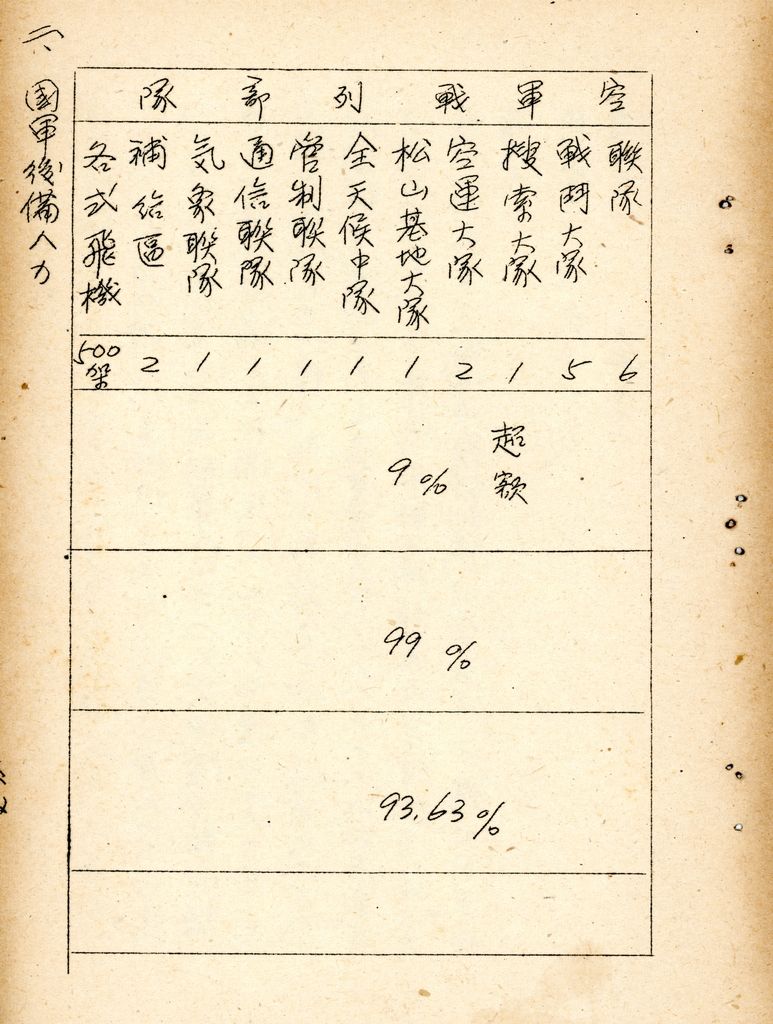 空軍戰列部隊
聯隊 6
戰鬥大隊 5
搜索大隊 1
空運大隊 2
松山基地大隊 1
全天候中隊 1
管制聯隊 1
通信聯隊 1
気象聯隊 1
補給區 2
各式飛機 500架
超額
9%
99%
93.63%
六、國軍後備人力